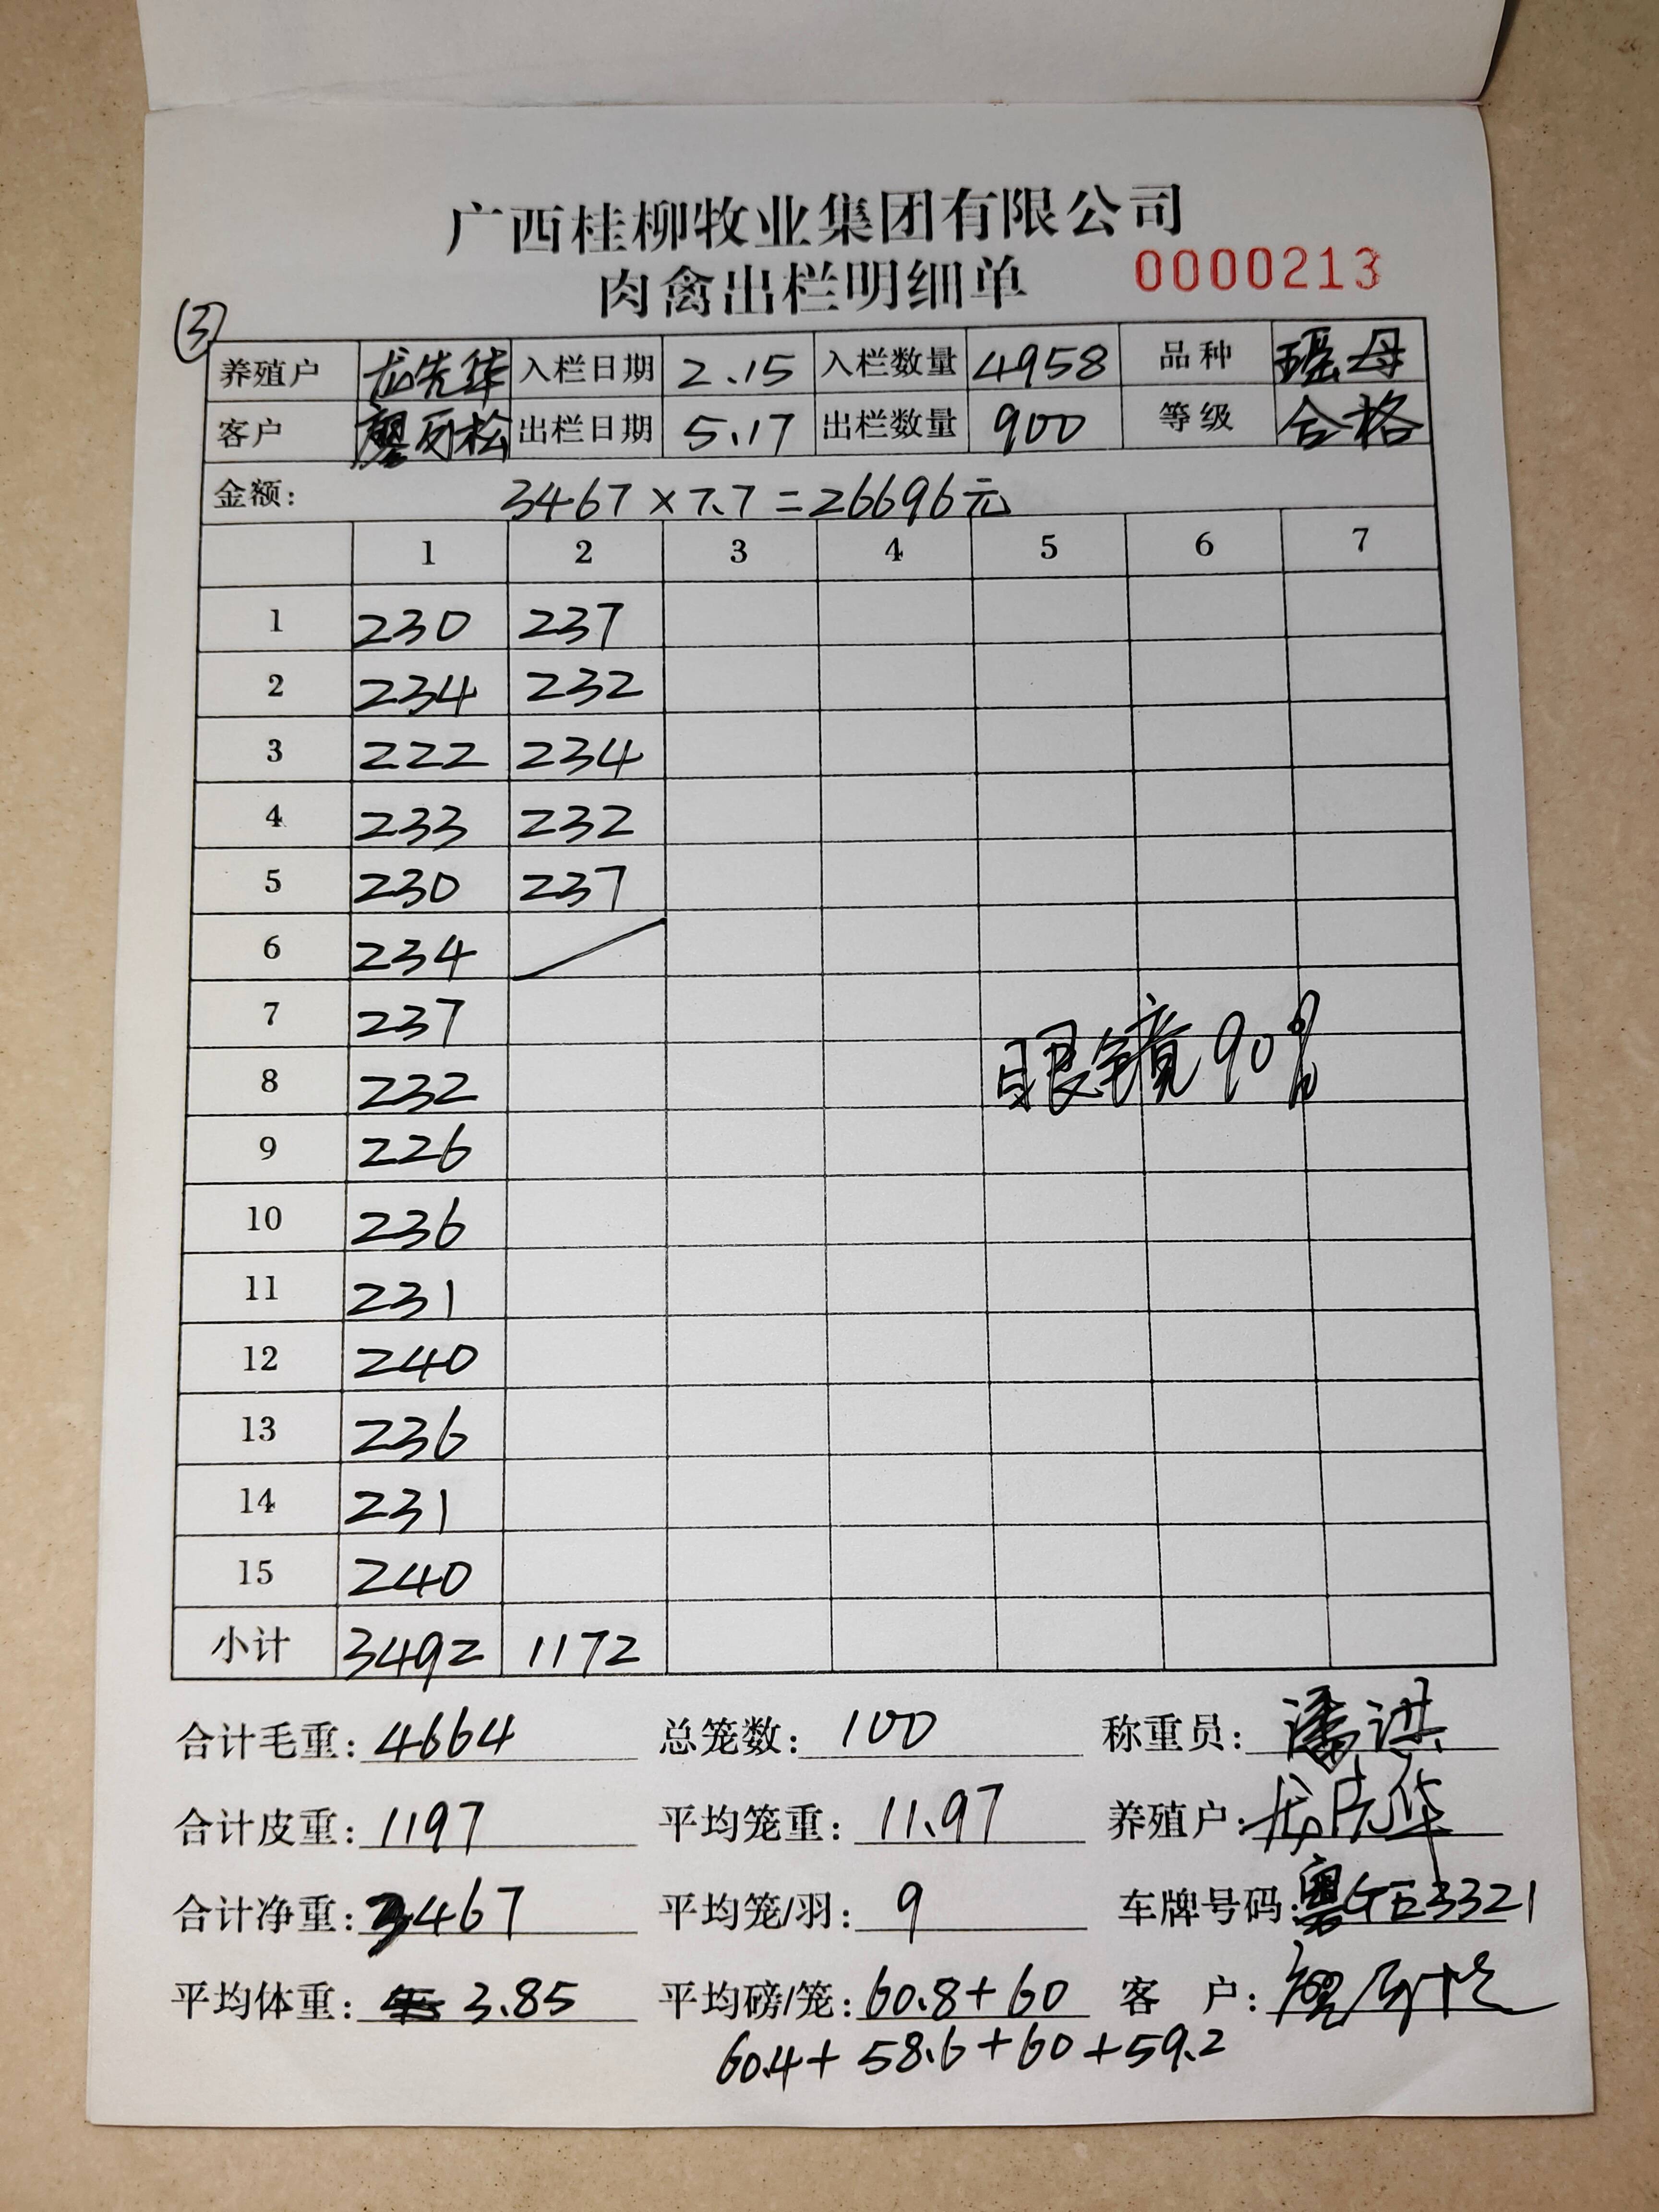 广西桂柳牧业集团有限公司
肉禽出栏明细单 0000213
③
养殖户 龙先华 入栏日期 2.15 入栏数量 4958 品种 瑶母
客户 廖 松 出栏日期 5.17 出栏数量 900 等级 合格
金额: 3467×7.7=26696元
1 2 3 4 5 6 7
1 230 237
2 234 232
3 222 234
4 233 232
5 230 237
6 234
7 237
8 232
9 226
10 236
11 231
12 240
13 236
14 231
15 240
眼镜90%
小计 3492 1172
合计毛重: 4664 总笼数: 100 称重员: 潘洪
合计皮重: 1197 平均笼重: 11.97 养殖户: 龙先华
合计净重: 3467 平均笼/羽: 9 车牌号码: 粤GE3321
平均体重: 3.85 平均磅/笼: 60.8+60 客 户:
60.4+58.6+60+59.2